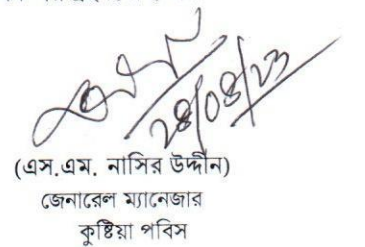 ২৪/০৪/২৩
(এস.এম. নাসির উদ্দীন)
জেনারেল ম্যানেজার
কুষ্টিয়া পবিস